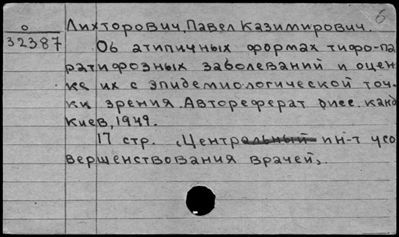 б
о Лихторович, Павел Казимирович.
32387 Об атипичных формах тифо-па
ратифозных заболеваний и оцен
ке их с эпидемиологической точ-
ки зрения. Автореферат дисс. канд
Киев, 1949.
17 стр. „Центральный ин-т усо
вершенствования врачей„.